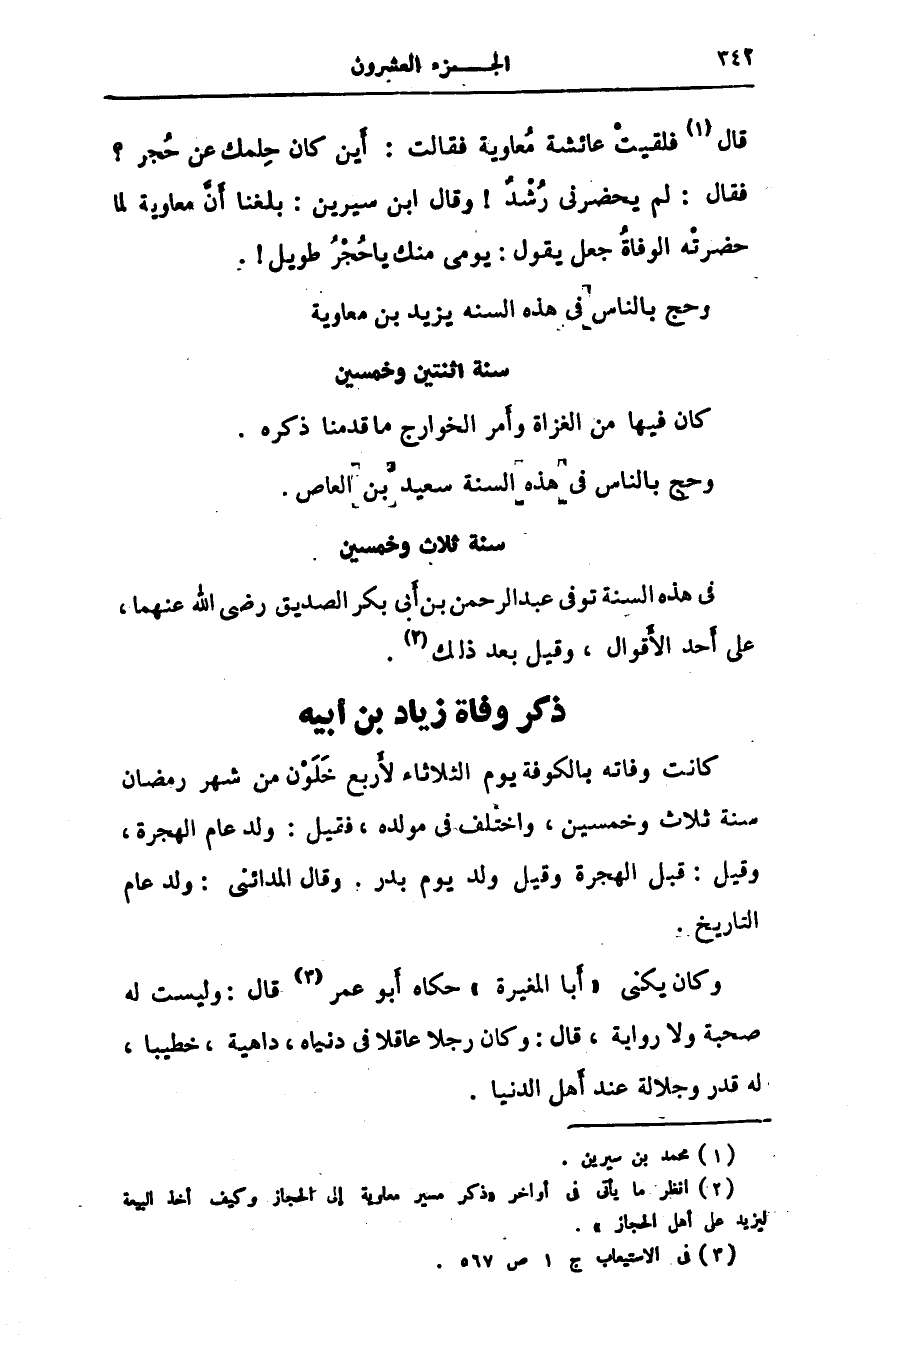 ٣٤٢
الجـــزء العشرون
قال (١) فلقيتْ عائشة مُعاوية فقالت : أَين كان حِلمك عن حُجر ؟
فقال : لم يحضرنى رُشْدٌ ! وقال ابن سيرين : بلغنا أَنَّ معاوية لما
حضرتْه الوفاةُ جعل يقول : يومى منك ياحُجْرُ طويل ! .
وحج بالناس فى هذه السنه يزيد بن معاوية
سنة اثنتين وخمسين
كان فيها من الغزاة وأَمر الخوارج ماقدمنا ذكره .
وحج بالناس فى [هذه] السنة سعيد [بن] العاص .
سنة ثلاث وخمسين
فى هذه السنة توفى عبدالرحمن بن أَبى بكر الصديق رضى الله عنهما ،
على أَحد الأَقوال ، وقيل بعد ذلك (٢) .
ذكر وفاة زياد بن أبيه
كانت وفاته بالكوفة يوم الثلاثاء لأَربع خَلَوْن من شهر رمضان
سنة ثلاث وخمسين ، واختُلف فى مولده ، فقيل : ولد عام الهجرة ،
وقيل : قبل الهجرة وقيل ولد يوم بدر . وقال المدائنى : ولد عام
التاريخ .
وكان يكنى « أَبا المغيرة » حكاه أَبو عمر (٣) قال : وليست له
صحبة ولا رواية ، قال : وكان رجلا عاقلا فى دنياه ، داهية ، خطيبا ،
له قدر وجلالة عند أَهل الدنيا .
(١) محمد بن سيرين .
(٢) انظر ما يأتى فى أواخر «ذكر مسير معاوية إلى الحجاز وكيف أخذ البيعة
ليزيد على أهل الحجاز » .
(٣) فى الاستيعاب ج ١ ص ٥٦٧ .